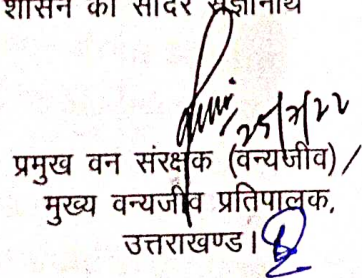 शासन को सादर संज्ञानार्थ
25/7/22
प्रमुख वन संरक्षक (वन्यजीव) /
मुख्य वन्यजीव प्रतिपालक,
उत्तराखण्ड।